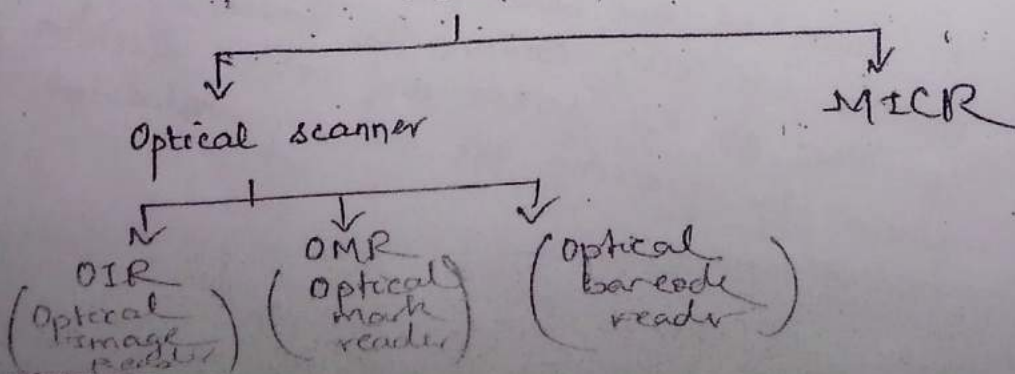 MICR
Optical scanner
OIR
(Optical
image
Reader)
OMR
(Optical
mark
reader)
(Optical
barcode
reader)